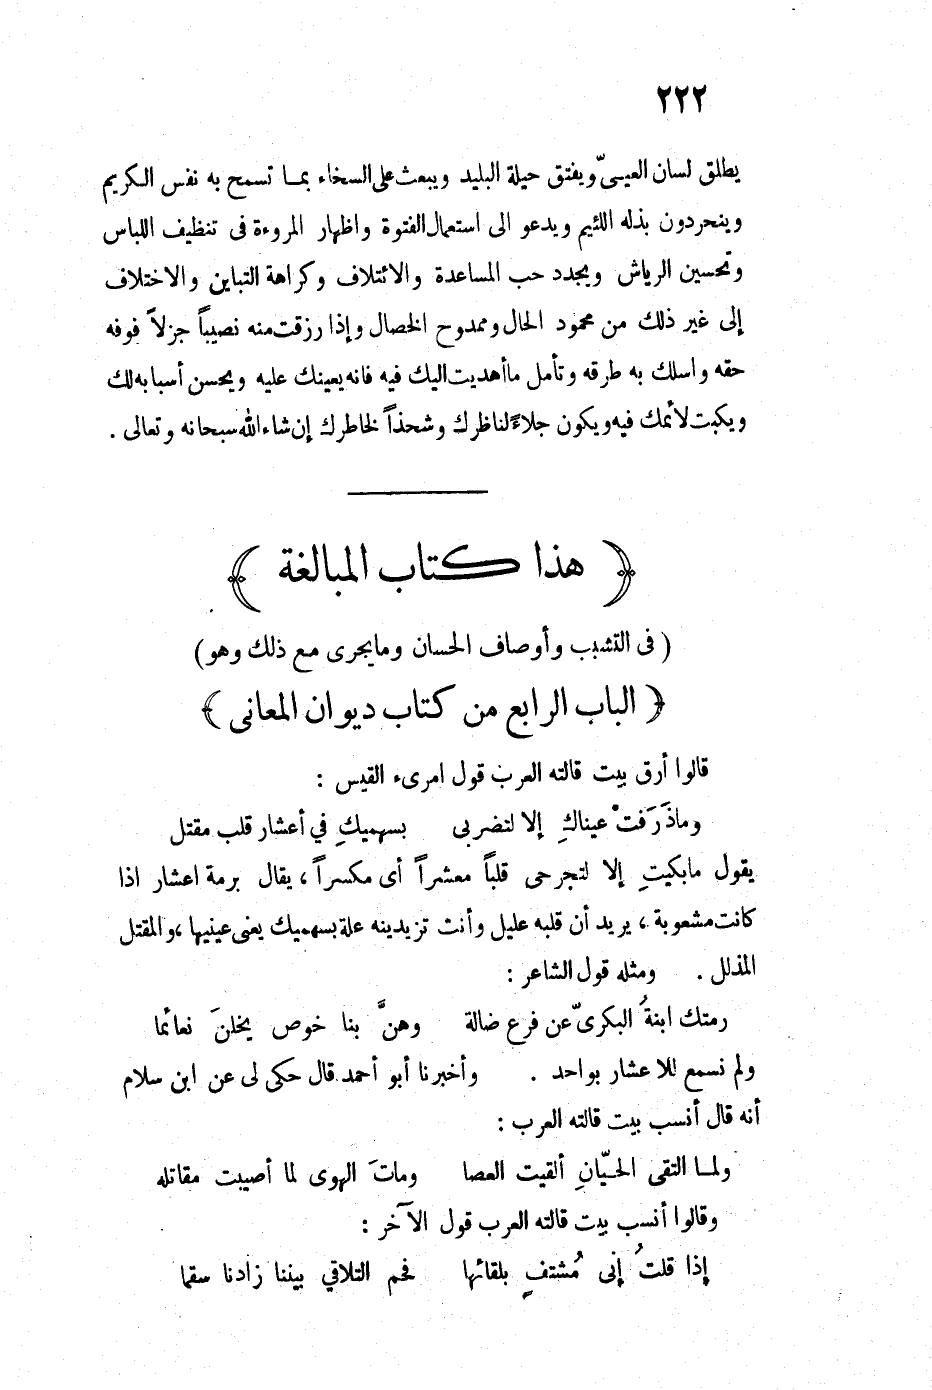 ٢٢٢
يطلق لسان العيىّ ويفتق حيلة البليد ويبعث على السخاء بمـا تسمح به نفس الكريم
وينحردون بذله اللئيم ويدعو الى استعمال الفتوة واظهار المروءة فى تنظيف اللباس
وتحسين الرياش ويجدد حب المساعدة والائتلاف وكراهة التباين والاختلاف
إلى غير ذلك من محمود الحال وممدوح الخصال وإذا رزقت منه نصيباً جزلاً فوفه
حقه واسلك به طرقه وتأمل ما أهديت اليك فيه فانه يعينك عليه ويحسن أسبابه لك
ويكبت لأئمك فيه ويكون جلاءً لناظرك وشحذاً لخاطرك إن شاء الله سبحانه وتعالى .
﴿ هذا كتاب المبالغة ﴾
( فى التشبب وأوصاف الحسان ومايجرى مع ذلك وهو)
﴿ الباب الرابع من كتاب ديوان المعانى ﴾
قالوا أرق بيت قالته العرب قول امرىء القيس :
وماذَرَفتْ عيناكِ إلا لتضربى بسهميكِ في أعشار قلب مقتل
يقول مابكيتِ إلا لتجرحى قلباً معشراً أى مكسراً ، يقال برمة اعشار اذا
كانت مشعوبة ، يريد أن قلبه عليل وأنت تزيدينه علة بسهميك يعنى عينيها ، والمقتل
المذلل . ومثله قول الشاعر :
رمتك ابنةُ البكرىّ عن فرع ضالة وهنَّ بنا خوص يخلنَ نعائما
ولم نسمع للاعشار بواحد . وأخبرنا أبو أحمد قال حكى لى عن ابن سلام
أنه قال أنسب بيت قالته العرب :
ولمـا التقى الحـيّانِ ألقيت العصا وماتَ الهوى لما أصيبت مقاتله
وقالوا أنسب بيت قالته العرب قول الآخر :
إذا قلتُ إنى مُشتفٍ بلقائها فحم التلاقي بيننا زادنا سقما